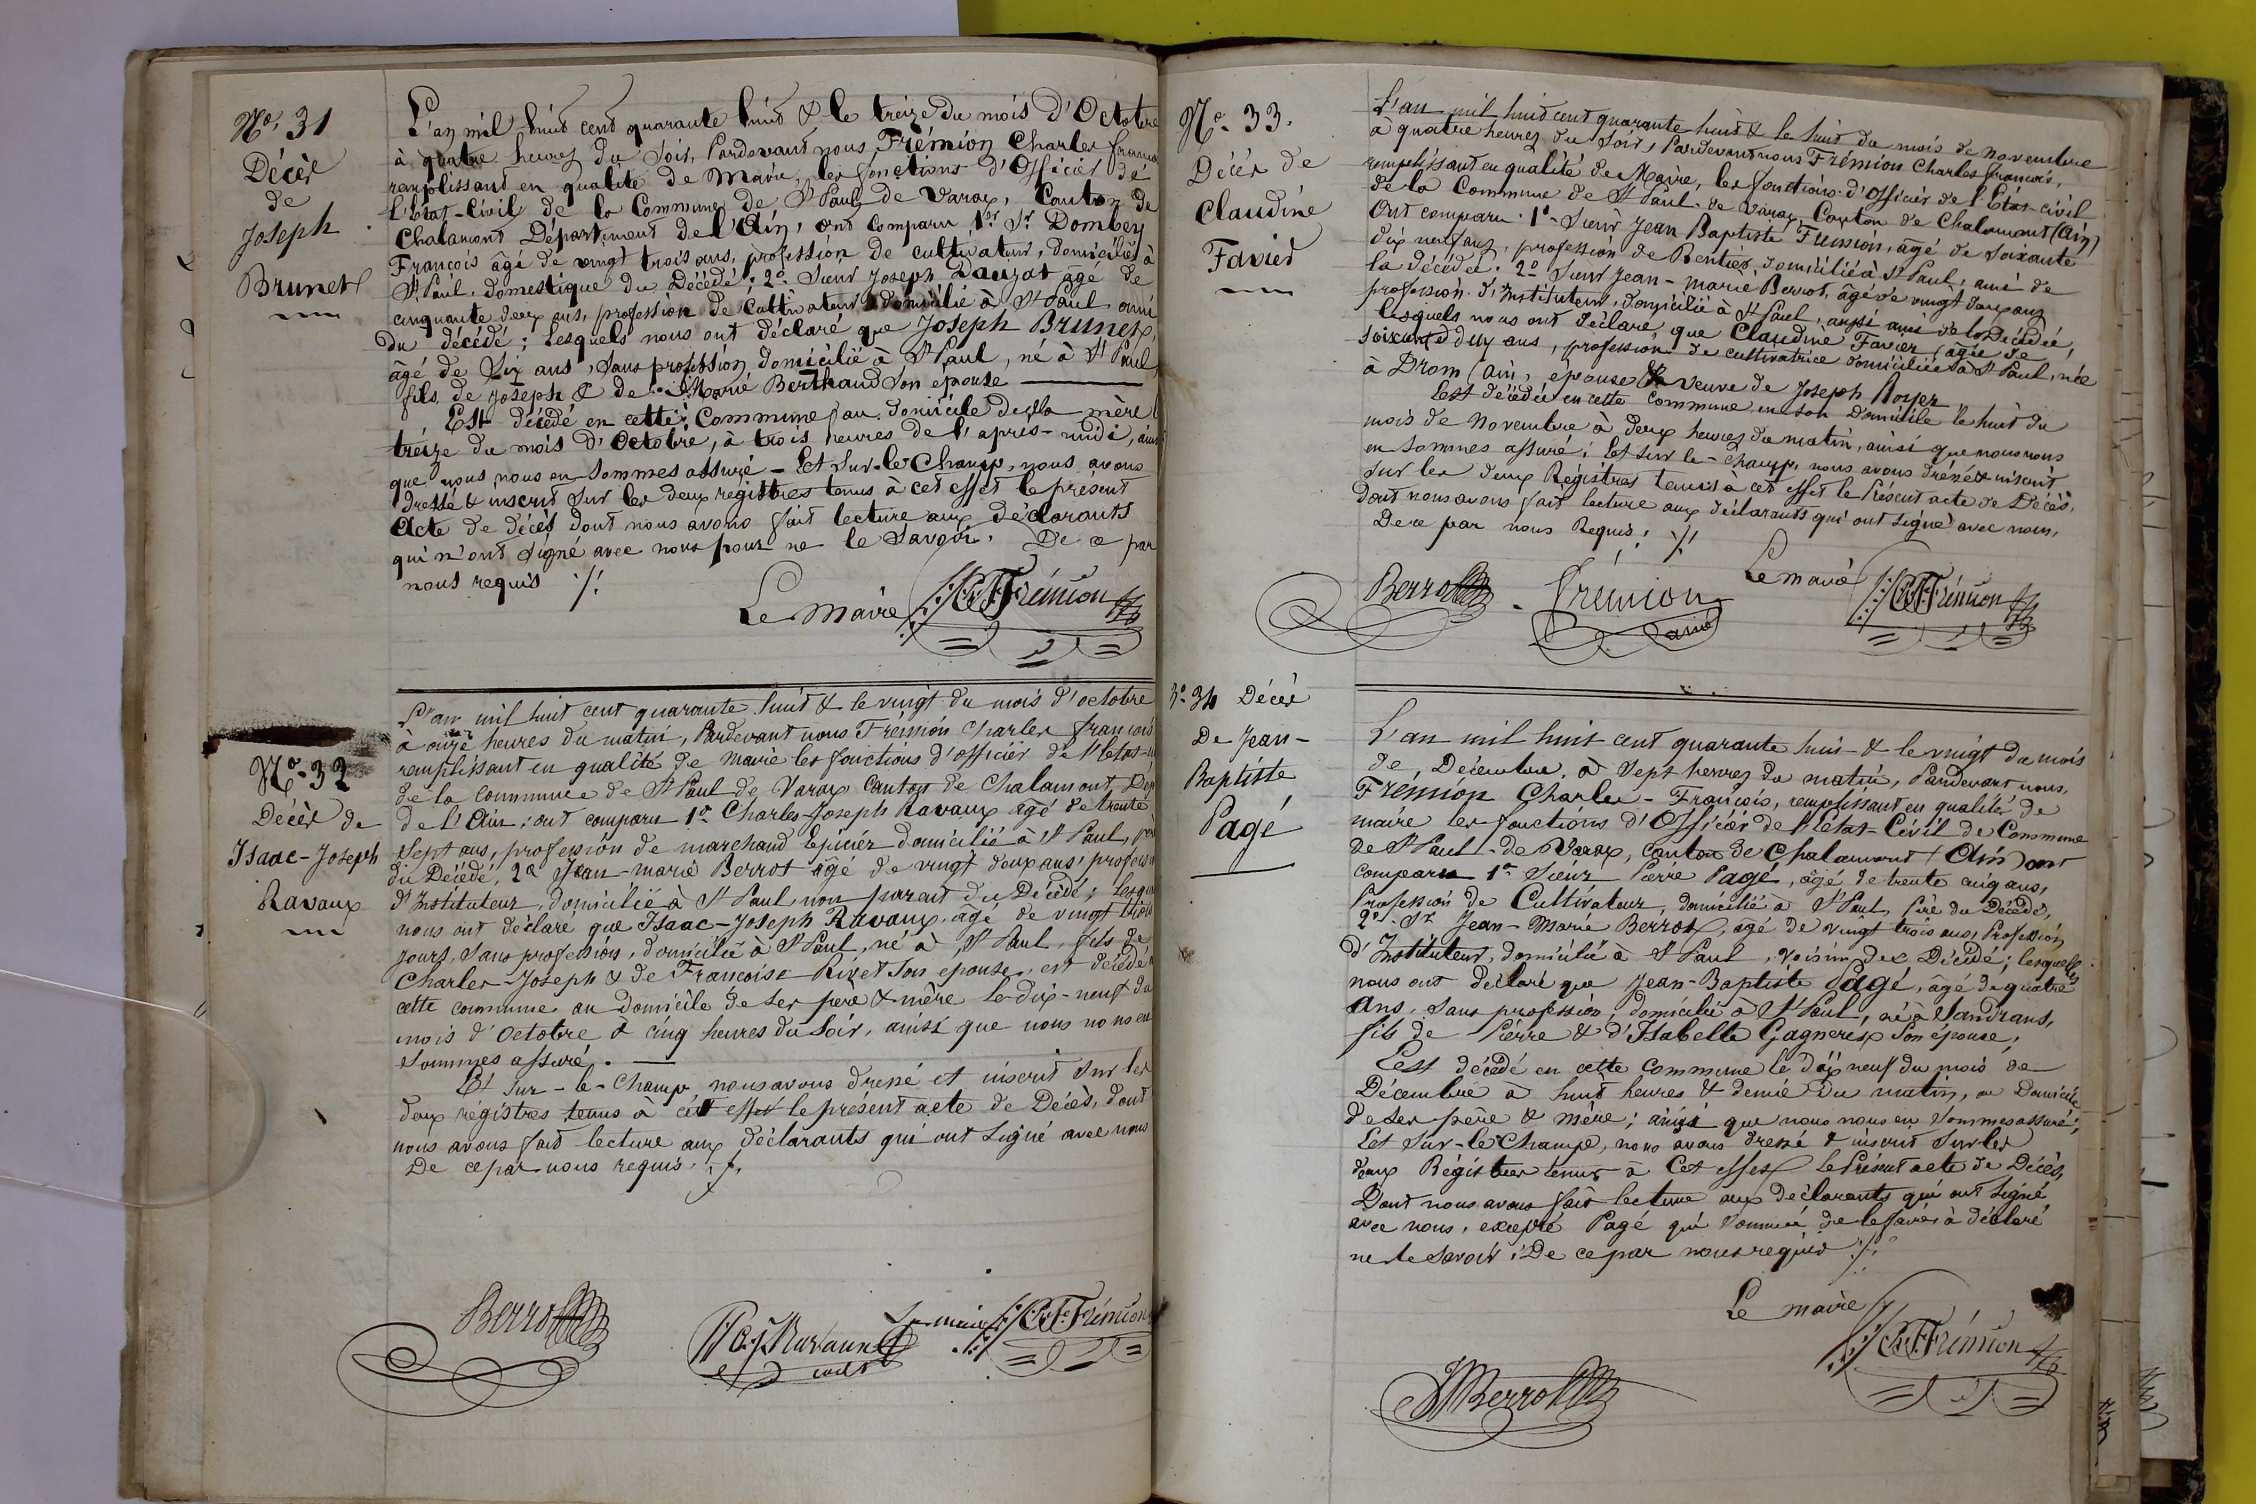 No. 31
Décès
de
Joseph
Brunet
L'an mil huit cent quarante huit & le treize du mois d'Octobre
à quatre heures du soir, Pardevant nous Frémion Charles
remplissant en qualité de Maire, les fonctions d'Officier de
l'État-Civil de la Commune de St Paul de Varax, Canton de
Chalamont Département de l'Ain, ont comparu 1er Sr Dombey
François âgé de vingt trois ans, profession de cultivateur, domicilié à
St Paul, domestique du Décédé; 2o. Sieur Joseph âgé de
cinquante deux ans, profession de Cultivateur domicilié à St Paul ami
du décédé; Lesquels nous ont déclaré que Joseph Brunet,
âgé de Six ans, sans profession domicilié à St Paul, né à St Paul
fils de Joseph & de Marie Berthaud son épouse
Est décédé en cette Commune au domicile de sa mère
treize du mois d'Octobre, à trois heures de l'après-midi,
que nous nous en sommes assuré - Et Sur-le-Champ, nous avons
dressé & inscrit sur les deux registres tenus à cet effet le présent
Acte de décès dont nous avons fait lecture aux déclarants
qui n'ont signé avec nous pour ne le savoir. De ce par
nous requis ./.
Le Maire Ch. F. Frémion
No. 32
Décès de
Isaac-Joseph
Ravaux
L'an mil huit cent quarante huit & le vingt du mois d'octobre
à onze heures du matin, Pardevant nous Frémion Charles François
remplissant en qualité de Maire les fonctions d'officier de l'Etat
de la commune de St Paul de Varax canton de Chalamont Dep
de l'Ain; ont comparu 1o Charles-Joseph Ravaux âgé de trente
Sept ans, profession de marchand Epicier domicilié à St Paul,
du Décédé, 2o Jean-marie Berrot âgé de vingt deux ans, profession
d'Instituteur, domicilié à St Paul non parent du Décédé;
nous ont déclaré que Isaac-Joseph Ravaux, âgé de vingt
jours, Sans profession, domicilié à St Paul, né à St Paul, fils de
Charles-Joseph & de Françoise Rivet Son épouse, est décédé
cette commune au domicile de ses père & mère le dix-neuf du
mois d'Octobre à cinq heures du Soir, ainsi que nous nous en
Sommes assuré.
Et sur-le-Champ nous avons dressé et inscrit Sur les
deux régistres tenus à cet effet le présent acte de Décès, dont
nous avons fait lecture aux déclarants qui ont signé avec nous
De ce par nous requis. ./.
Berrot Ravaux Le maire Ch. F. Frémion
No. 33.
Décès de
Claudine
Favier
L'an mil huit cent quarante huit & le huit du mois de novembre
à quatre heures du Soir, Pardevant nous Frémion Charles François,
remplissant en qualité de Maire, les fonctions d'Officier de l'État-civil
de la Commune de St Paul de Varax, Canton de Chalamont (Ain)
Ont comparu 1o. Sieur Jean Baptiste Frémion, âgé de Soixante
dix neuf ans, profession de Rentier, domicilié à St Paul, ami de
la décédée. 2o Sieur Jean-marie Berrot, âgé de vingt deux ans
profession d'Instituteur, domicilié à St Paul, aussi ami de la Décédée,
lesquels nous ont déclaré que Claudine Favier, âgée de
soixante deux ans, profession de cultivatrice domiciliée à St Paul, née
à Drom (Ain, épouse veuve de Joseph Royer
Est décédée en cette commune en son Domicile le huit du
mois de Novembre à deux heures du matin, ainsi que nous nous
en sommes assuré; Et sur le-champ, nous avons dréssé & inscrit
sur les deux Régistres tenus à cet effet le Présent acte de Décès,
dont nous avons fait lecture aux déclarants qui ont signé avec nous,
De ce par nous Requis; ./.
Le maire
Berrot Frémion ainé Ch. F. Frémion
No. 34 Décès
De Jean-
Baptiste
Pagé
L'an mil huit cent quarante huit & le vingt du mois
de Décembre, à Sept heures du matin, Pardevant nous,
Frémion Charles-François, remplissant en qualité de
maire les fonctions d'Officier de l'Etat-Civil de Commune
de St Paul-de Varax, canton de Chalamont (Ain) ont
comparu 1o Sieur Pierre Pagé, âgé de trente cinq ans,
Profession de Cultivateur, domicilié à St Paul, Père du Décédé,
2o. Sr Jean-Marie Berrot, âgé de vingt trois ans, Profession
d'Instituteur, domicilié à St Paul, voisin du Décédé; lesquels
nous ont déclaré que Jean-Baptiste Pagé, âgé de quatre
Ans, sans profession, domicilié à St Paul, né à Sandrans,
fils de Pierre & d'Isabelle Gagneres Son épouse,
Est décédé en cette Commune le dix neuf du mois de
Décembre à huit heures & demie Du matin, au Domicile
de ses père & mère; ainsi que nous nous en sommes assuré;
Et Sur-le-Champ, nous avons dressé & inscrit Sur les
deux Régistres tenus à Cet effet le Présent acte de Décès,
Dont nous avons fait lecture aux déclarants qui ont Signé
avec nous, excepté Pagé qui Sommé de le faire à déclaré
ne le savoir; De ce par nous requis ./.
Le maire
Ch. F. Frémion
JM Berrot